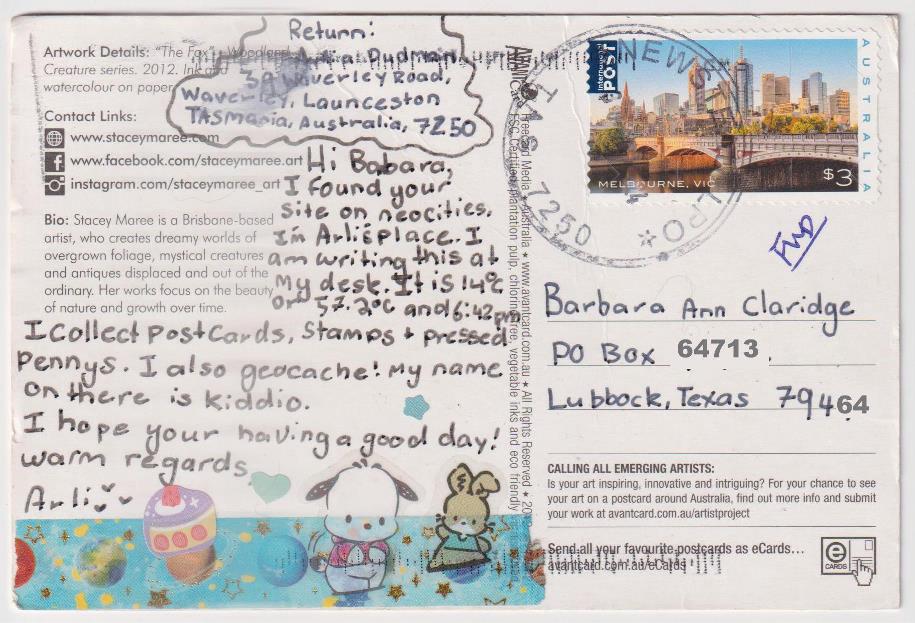 Return:
Arli Dudman
Waverley Road,
Waverley, Launceston
TASMania, Australia, 7250
Artwork Details: "The Fox", Woodland
Creature series. 2012. Ink and
watercolour on paper
Contact Links:
www.staceymaree.com
www.facebook.com/staceymaree.art
instagram.com/staceymaree_art
Bio: Stacey Maree is a Brisbane-based
artist, who creates dreamy worlds of
overgrown foliage, mystical creatures
and antiques displaced and out of the
ordinary. Her works focus on the beauty
of nature and growth over time.
Hi Babara,
I found your
site on neocities.
i'm Arli'splace. I
am writing this at
My desk. It is 14°c
or 57.2°c and 6:42pm
I collect postcards, stamps + pressed
Pennys. I also geocache! My name
on there is kiddio.
I hope your having a good day!
warm regards
Arli
Freecard Media ★ Australia ★ www.avantcard.com.au ★ All Rights Reserved ★
FSC Certified, plantation pulp, chlorine free, vegetable inks and eco friendly
International
POST
AUSTRALIA
MELBOURNE, VIC
$3
TAS 7250
LPO
FWD
Barbara Ann Claridge
PO Box 64713
Lubbock, Texas 79464
CALLING ALL EMERGING ARTISTS:
Is your art inspiring, innovative and intriguing? For your chance to see
your art on a postcard around Australia, find out more info and submit
your work at avantcard.com.au/artistproject
Send all your favourite postcards as eCards...
avantcard.com.au/eCards
e
CARDS